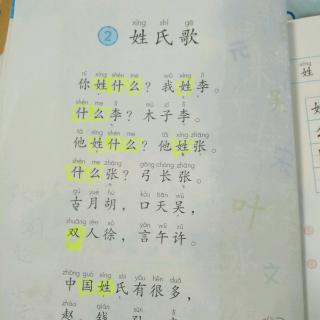 xìng shì gē
2 姓氏歌
nǐ xìng shén me wǒ xìng lǐ
你姓什么？我姓李。
shén me lǐ mù zǐ lǐ
什么李？木子李。
tā xìng shén me tā xìng zhāng
他姓什么？他姓张。
shén me zhāng gōng cháng zhāng
什么张？弓长张。
gǔ yuè hú kǒu tiān wú
古月胡，口天吴，
shuāng rén xú yán wǔ xǔ
双人徐，言午许。
zhōng guó xìng shì yǒu hěn duō
中国姓氏有很多，
zhào qián
赵，钱